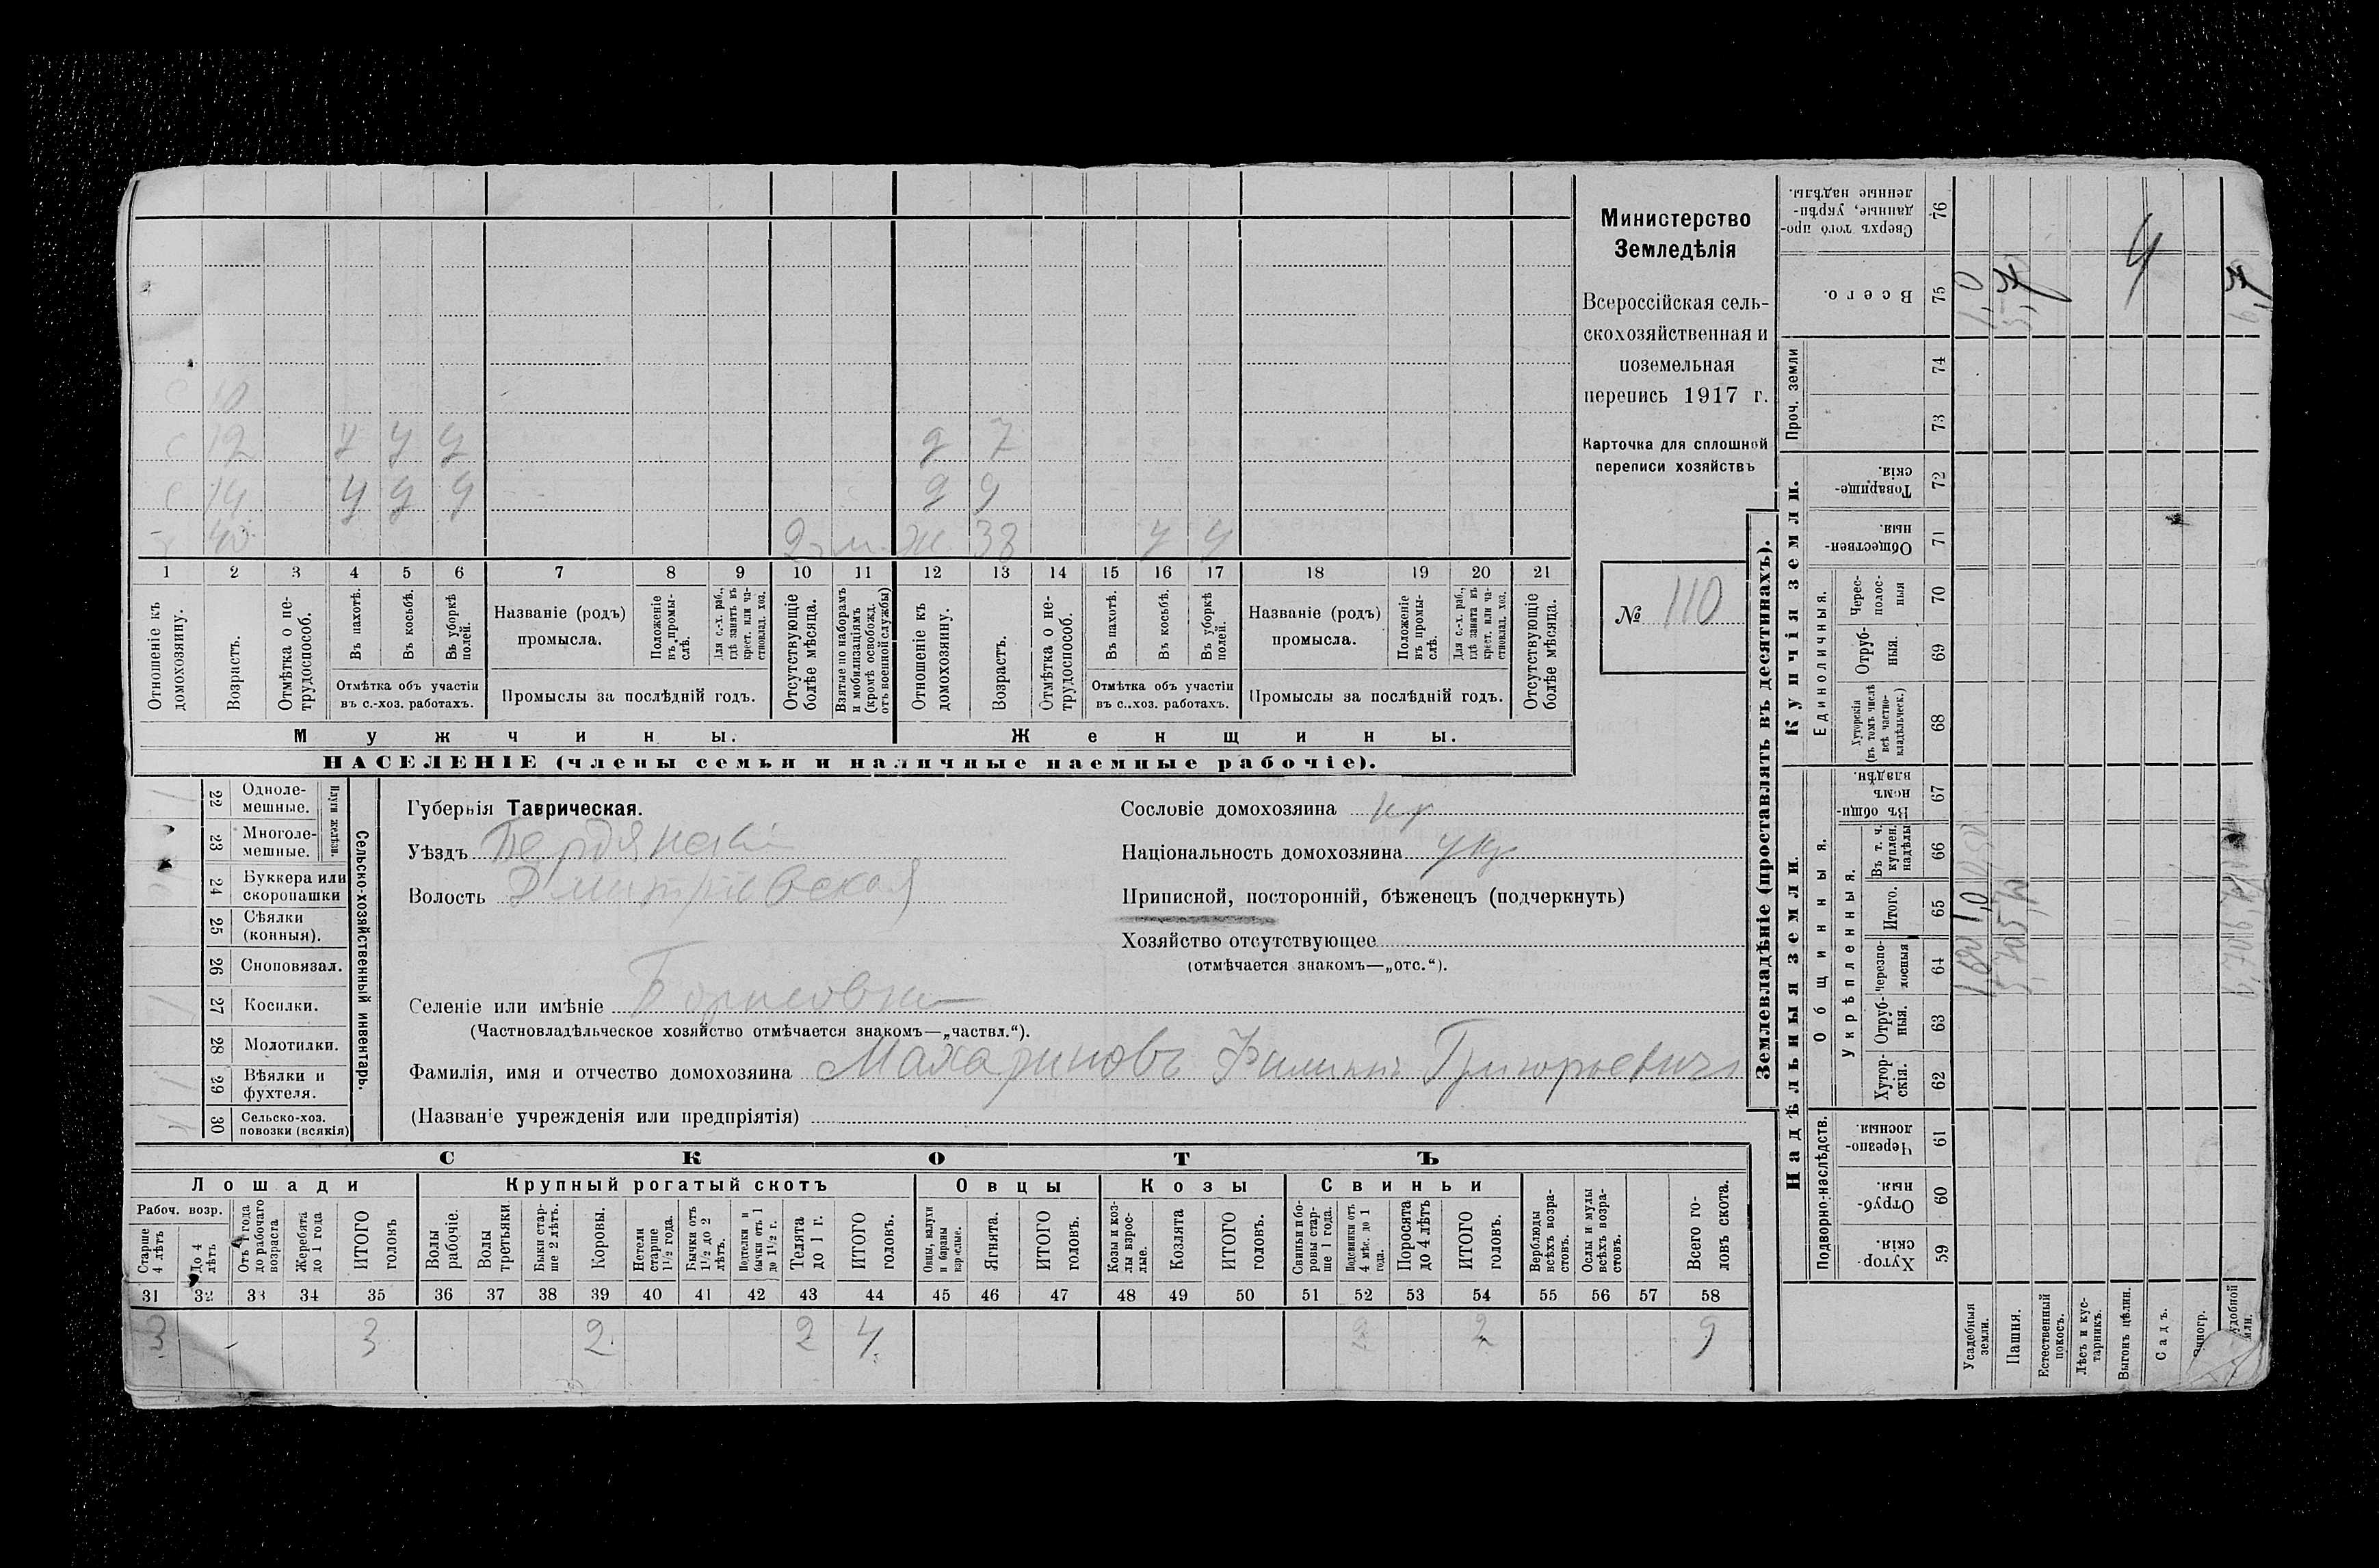 с 10
с 12 у у у д 7
с 14 у у у д 9
х 40 ж 38 у у
1 2 3 4 5 6 7 8 9 10 11 12 13 14 15 16 17 18 19 20 21
Отношеніе къ домохозяину.
Возрастъ.
Отмѣтка о не-трудоспособ.
Въ пахотѣ.
Въ косьбѣ.
Въ уборкѣ полей.
Отмѣтка объ участіи
въ с.-хоз. работахъ.
Названіе (родъ)
промысла.
Положеніе въ промы-слѣ.
Для с.-х. раб., гдѣ занятъ въ крест. или ча-стновлад. хоз.
Промыслы за послѣдній годъ.
Отсутствующіе болѣе мѣсяца.
Взятые по наборамъ и мобилизаціямъ (кромѣ освобожд. отъ военной службы)
Отношеніе къ домохозяину.
Возрастъ.
Отмѣтка о не-трудоспособ.
Въ пахотѣ.
Въ косьбѣ.
Въ уборкѣ полей.
Отмѣтка объ участіи
въ с..хоз. работахъ.
Названіе (родъ)
промысла.
Положеніе въ промы-слѣ.
Для с.-х. раб., гдѣ занята въ крест. или ча-стновлад. хоз.
Промыслы за послѣдній годъ.
Отсутствующіе болѣе мѣсяца.
Мужчины.
Женщины.
НАСЕЛЕНІЕ (члены семьи и наличные наемные рабочіе).
Министерство
Земледѣлія
Всероссійская сель-
скохозяйственная и
поземельная
перепись 1917 г.
Карточка для сплошной
переписи хозяйствъ
№ 110
22 Одноле-мешные.
23 Многоле-мешные.
Плуги желѣзн.
24 Буккера или скоропашки
25 Сѣялки (конныя).
26 Сноповязал.
27 Косилки.
28 Молотилки.
29 Вѣялки и фухтеля.
30 Сельско-хоз. повозки (всякія)
Сельско-хозяйственный инвентарь.
Губернія Таврическая.
Уѣздъ Бердянскій
Волость Дмитріевская
Селеніе или имѣніе Борисовка
(Частновладѣльческое хозяйство отмѣчается знакомъ—„частвл.“).
Фамилія, имя и отчество домохозяина Махариновъ Филиппъ Григорьевичъ
(Названіе учрежденія или предпріятія)
Сословіе домохозяина кр
Національность домохозяина укр
Приписной, посторонній, бѣженецъ (подчеркнуть)
Хозяйство отсутствующее
(отмѣчается знакомъ—„отс.“).
СКОТЪ
Лошади
Крупный рогатый скотъ
Овцы
Козы
Свиньи
Рабоч. возр.
Старше 4 лѣтъ
До 4 лѣтъ
Отъ 1 года до рабочаго возраста
Жеребята до 1 года
ИТОГО головъ
Волы рабочіе.
Волы третьяки
Быки стар-ше 2 лѣтъ.
Коровы.
Нетели старше 1½ года.
Бычки отъ 1½ до 2 лѣтъ.
Подтелки и бычки отъ 1 до 1½ г.
Телята до 1 г.
ИТОГО головъ.
Овцы, валухи и бараны взрослые.
Ягнята.
ИТОГО головъ.
Козы и коз-лы взрос-лые.
Козлята
ИТОГО головъ.
Свиньи и бо-ровы стар-ше 1 года.
Подсвинки отъ 4 мѣс. до 1 года.
Поросята до 4 лѣтъ
ИТОГО головъ.
Верблюды всѣхъ возра-стовъ.
Ослы и мулы всѣхъ возра-стовъ.
Всего го-ловъ скота.
31 32 33 34 35 36 37 38 39 40 41 42 43 44 45 46 47 48 49 50 51 52 53 54 55 56 57 58
3 3 2 2 4 2 2 9
Землевладѣніе (проставлять въ десятинахъ).
Надѣльныя земли.
Купчія земли.
Проч. земли
Подворно-наслѣдств.
Общинныя.
Укрѣпленныя.
Единоличныя.
Хутор-скія. 59
Отруб-ныя. 60
Черезпо-лосныя. 61
Хутор-скія. 62
Отруб-ныя. 63
черезпо-лосныя 64
Итого. 65
Въ т. ч. куплен. надѣлы 66
Въ общин-номъ владѣн. 67
Хуторскія (въ томъ числѣ всѣ частно-владѣльческ.) 68
Отруб-ныя. 69
Черес-полос-ныя 70
Обществен-ныя. 71
Товарище-скія. 72
73
74
Всего. 75
Сверхъ того про-данные, укрѣп-ленные надѣлы. 76
Усадебныя земли.
Пашня.
Естественный покосъ.
Лѣсъ и кус-тарникъ.
Выгонъ цѣлин.
Садъ.